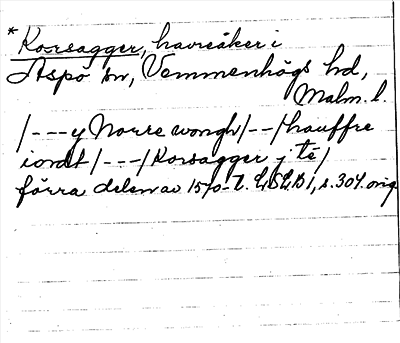 * Korsagger, havreåker i
Äspö sn, Vemmenhögs hd,
Malm. l.
/---y Norre wongh/--/hauffre
iordt/---/Korsagger j té/
förra delen av 1570-t. LSLB 1, s. 304. orig